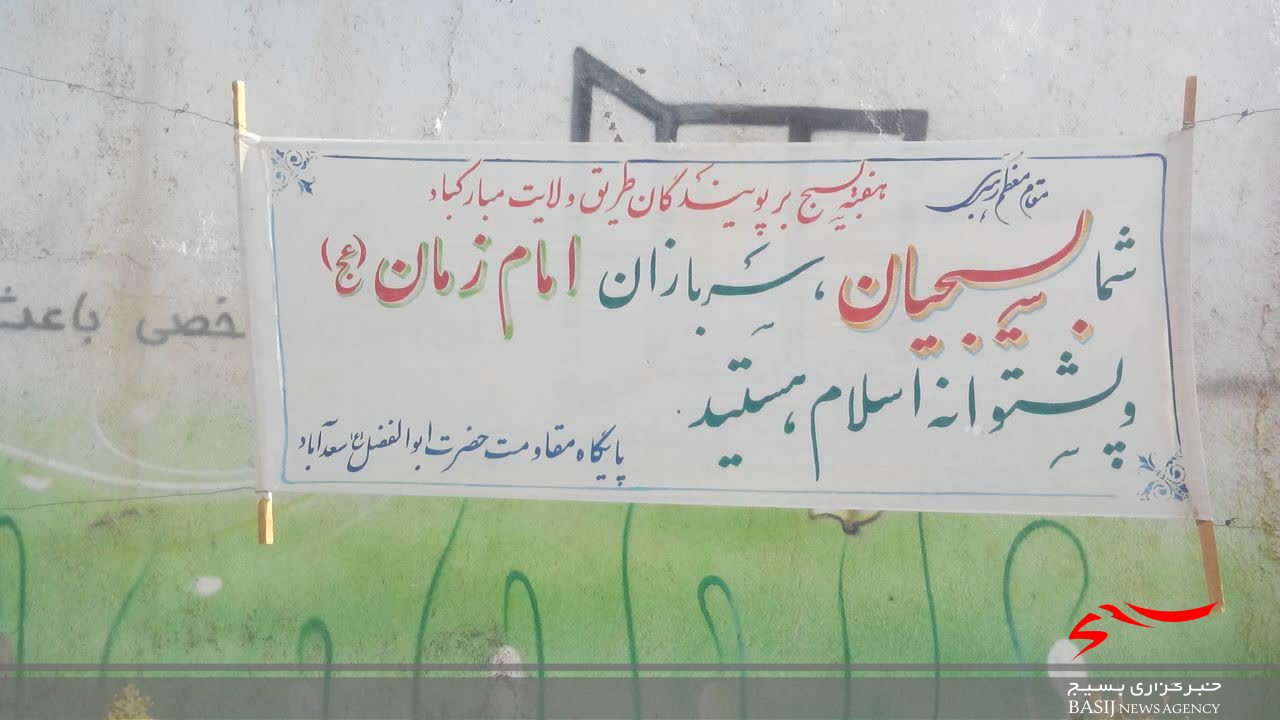 مقام معظم رهبری
هفته بسیج بر پویندگان طریق ولایت مبارکباد
شما بسیجیان، سربازان امام زمان (عج)
و پشتوانه اسلام هستید
پایگاه مقاومت حضرت ابوالفضل (ع) سعدآباد
خصی باعث
بسیج
خبرگزاری بسیج
BASIJ NEWS AGENCY